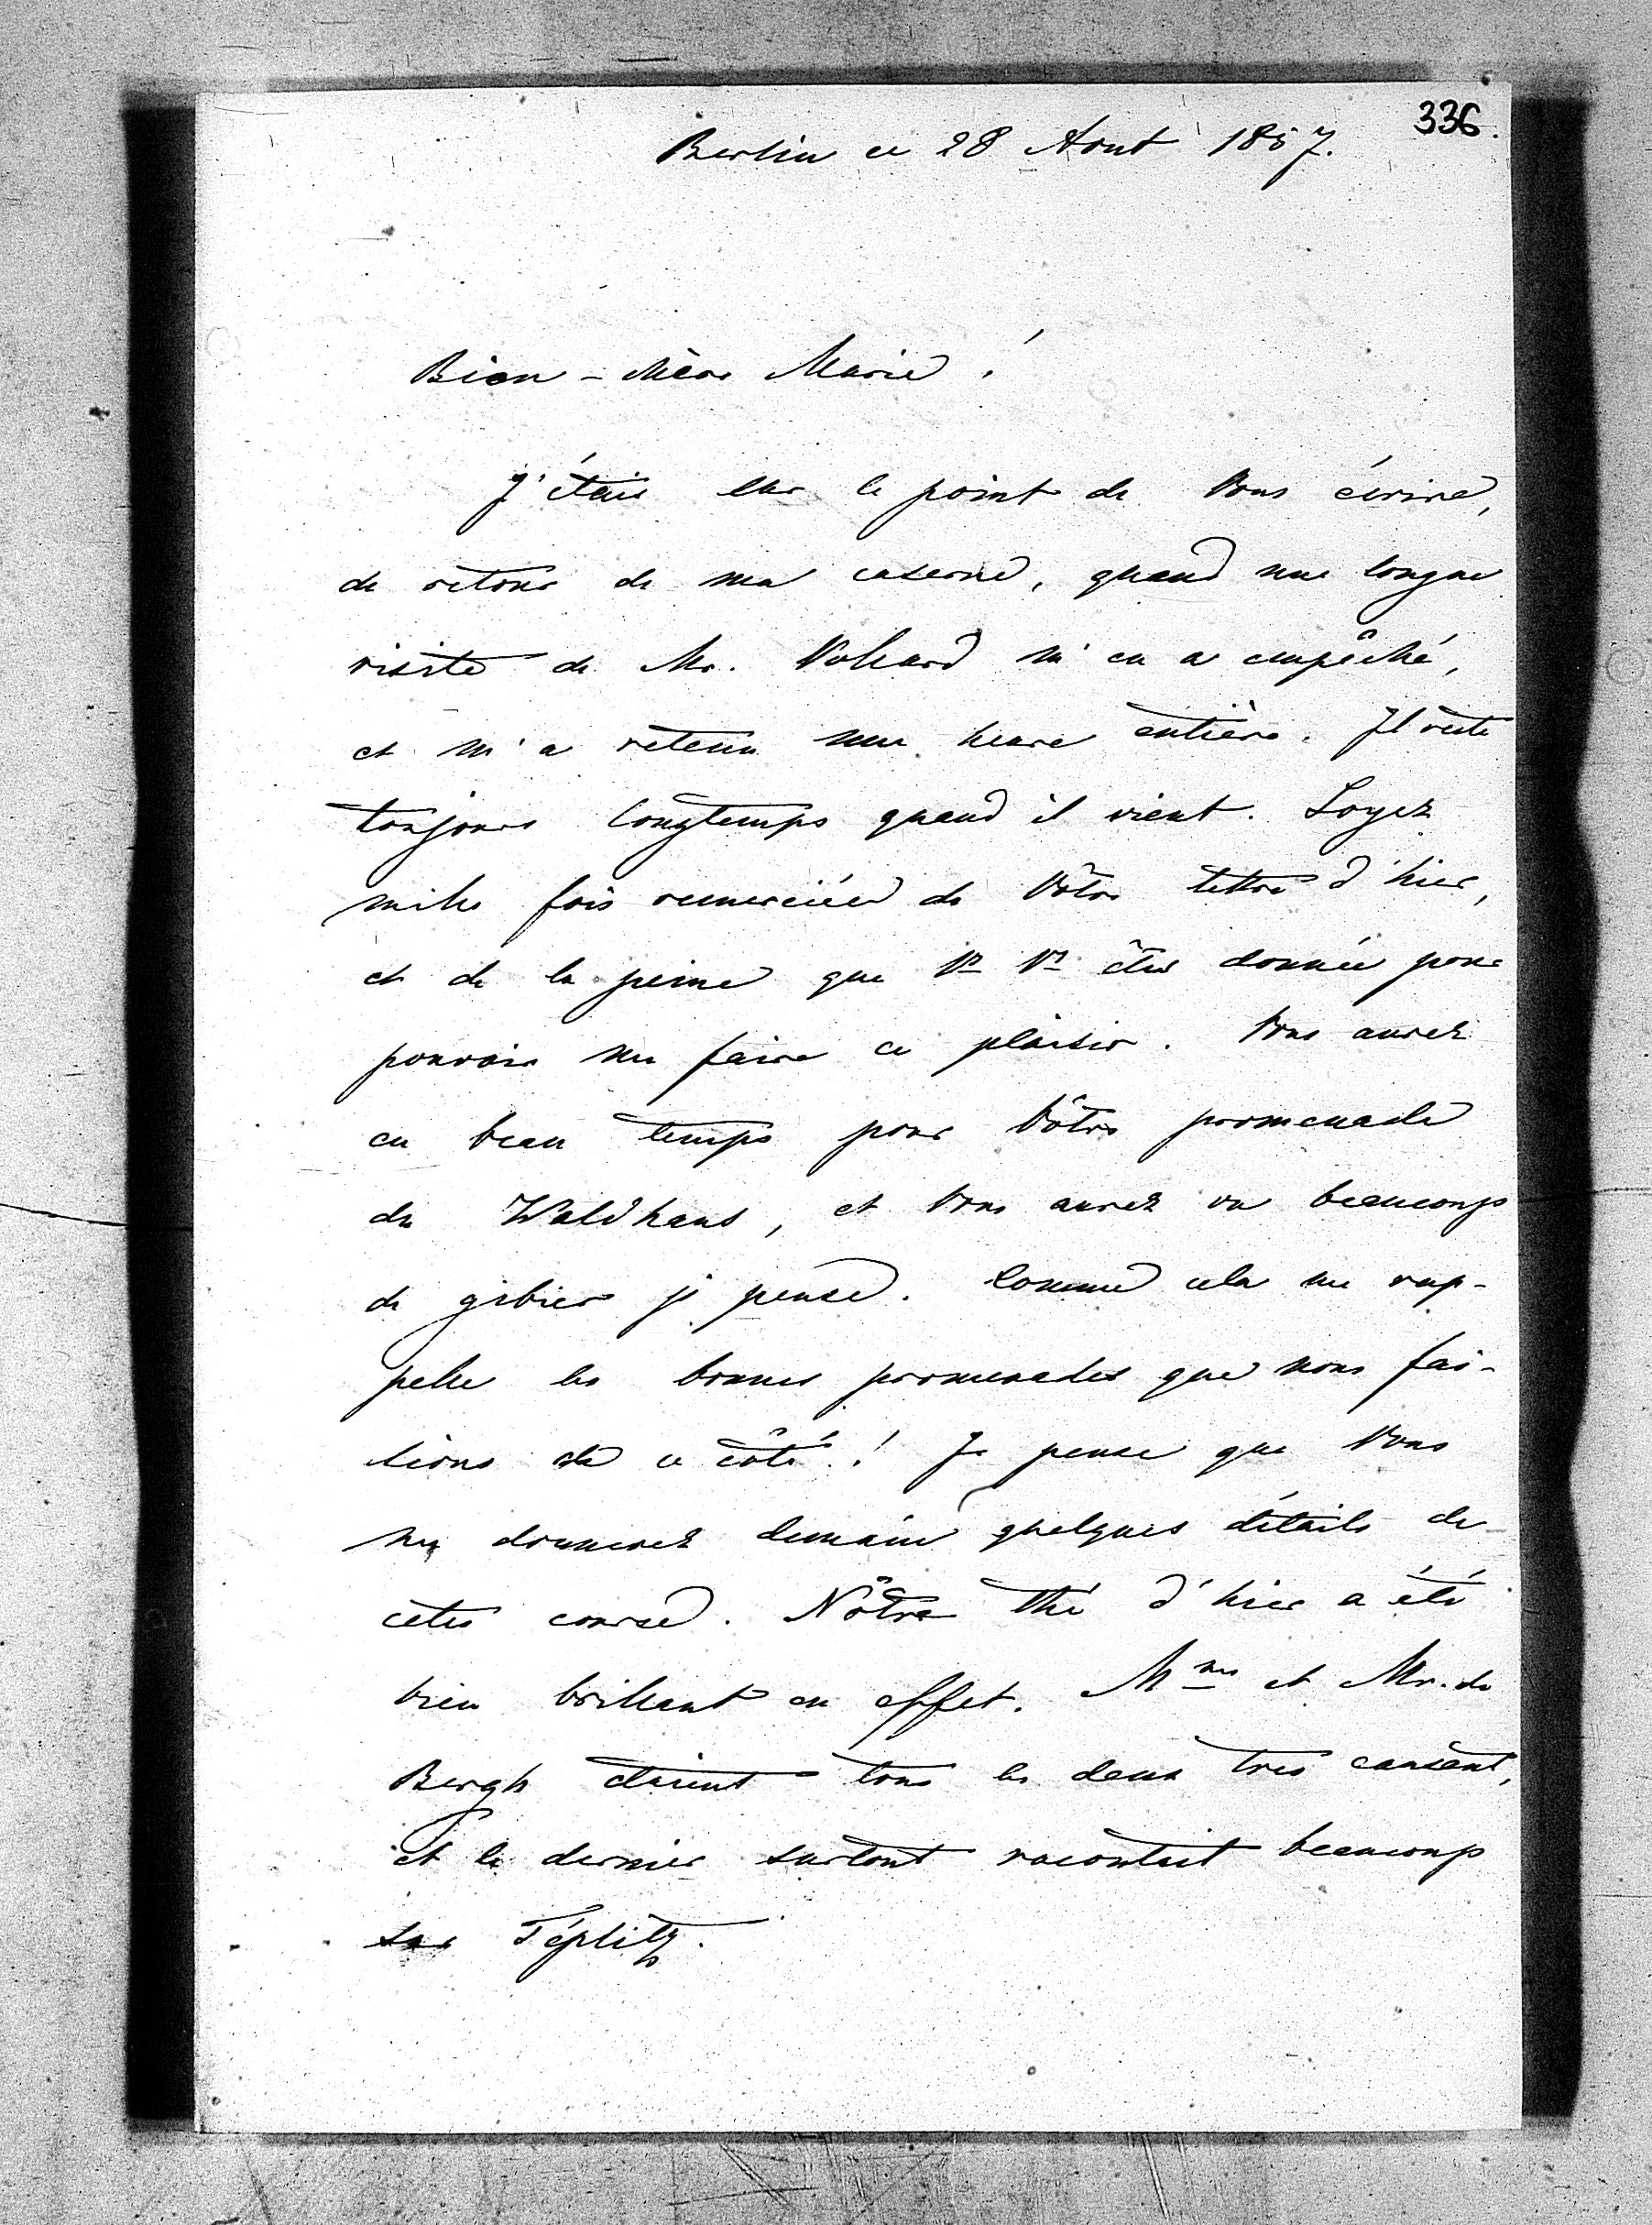 336.
Berlin ce 28 Aout 1857.
Bien-chère Marie!
J'étais sur le point de Vous écrire,
de retour de ma caserne, quand une longue
visite de Mr. Vollard m'en a empêché,
et m'a retenu une heure entière. Il reste
toujours longtemps quand il vient. Soyez
mille fois remerciée de Vôtre lettre d'hier,
et de la peine que Vs Vs êtes donnée pour
pouvoir me faire ce plaisir. Vous aurez
eu beau temps pour Vôtre promenade
du Waldhaus, et Vous aurez vu beaucoup
de gibier je pense. Comme cela me rap-
pelle les bonnes promenades que nous fai-
sions de ce côté! Je pense que Vous
me donnerez demain quelques détails de
cette course. Nôtre thé d'hier a été
bien brillant en effet. Mme et Mr. de
Bergh étaient tous les deux très causant,
et le dernier surtout racontait beaucoup
sur Téplitz.